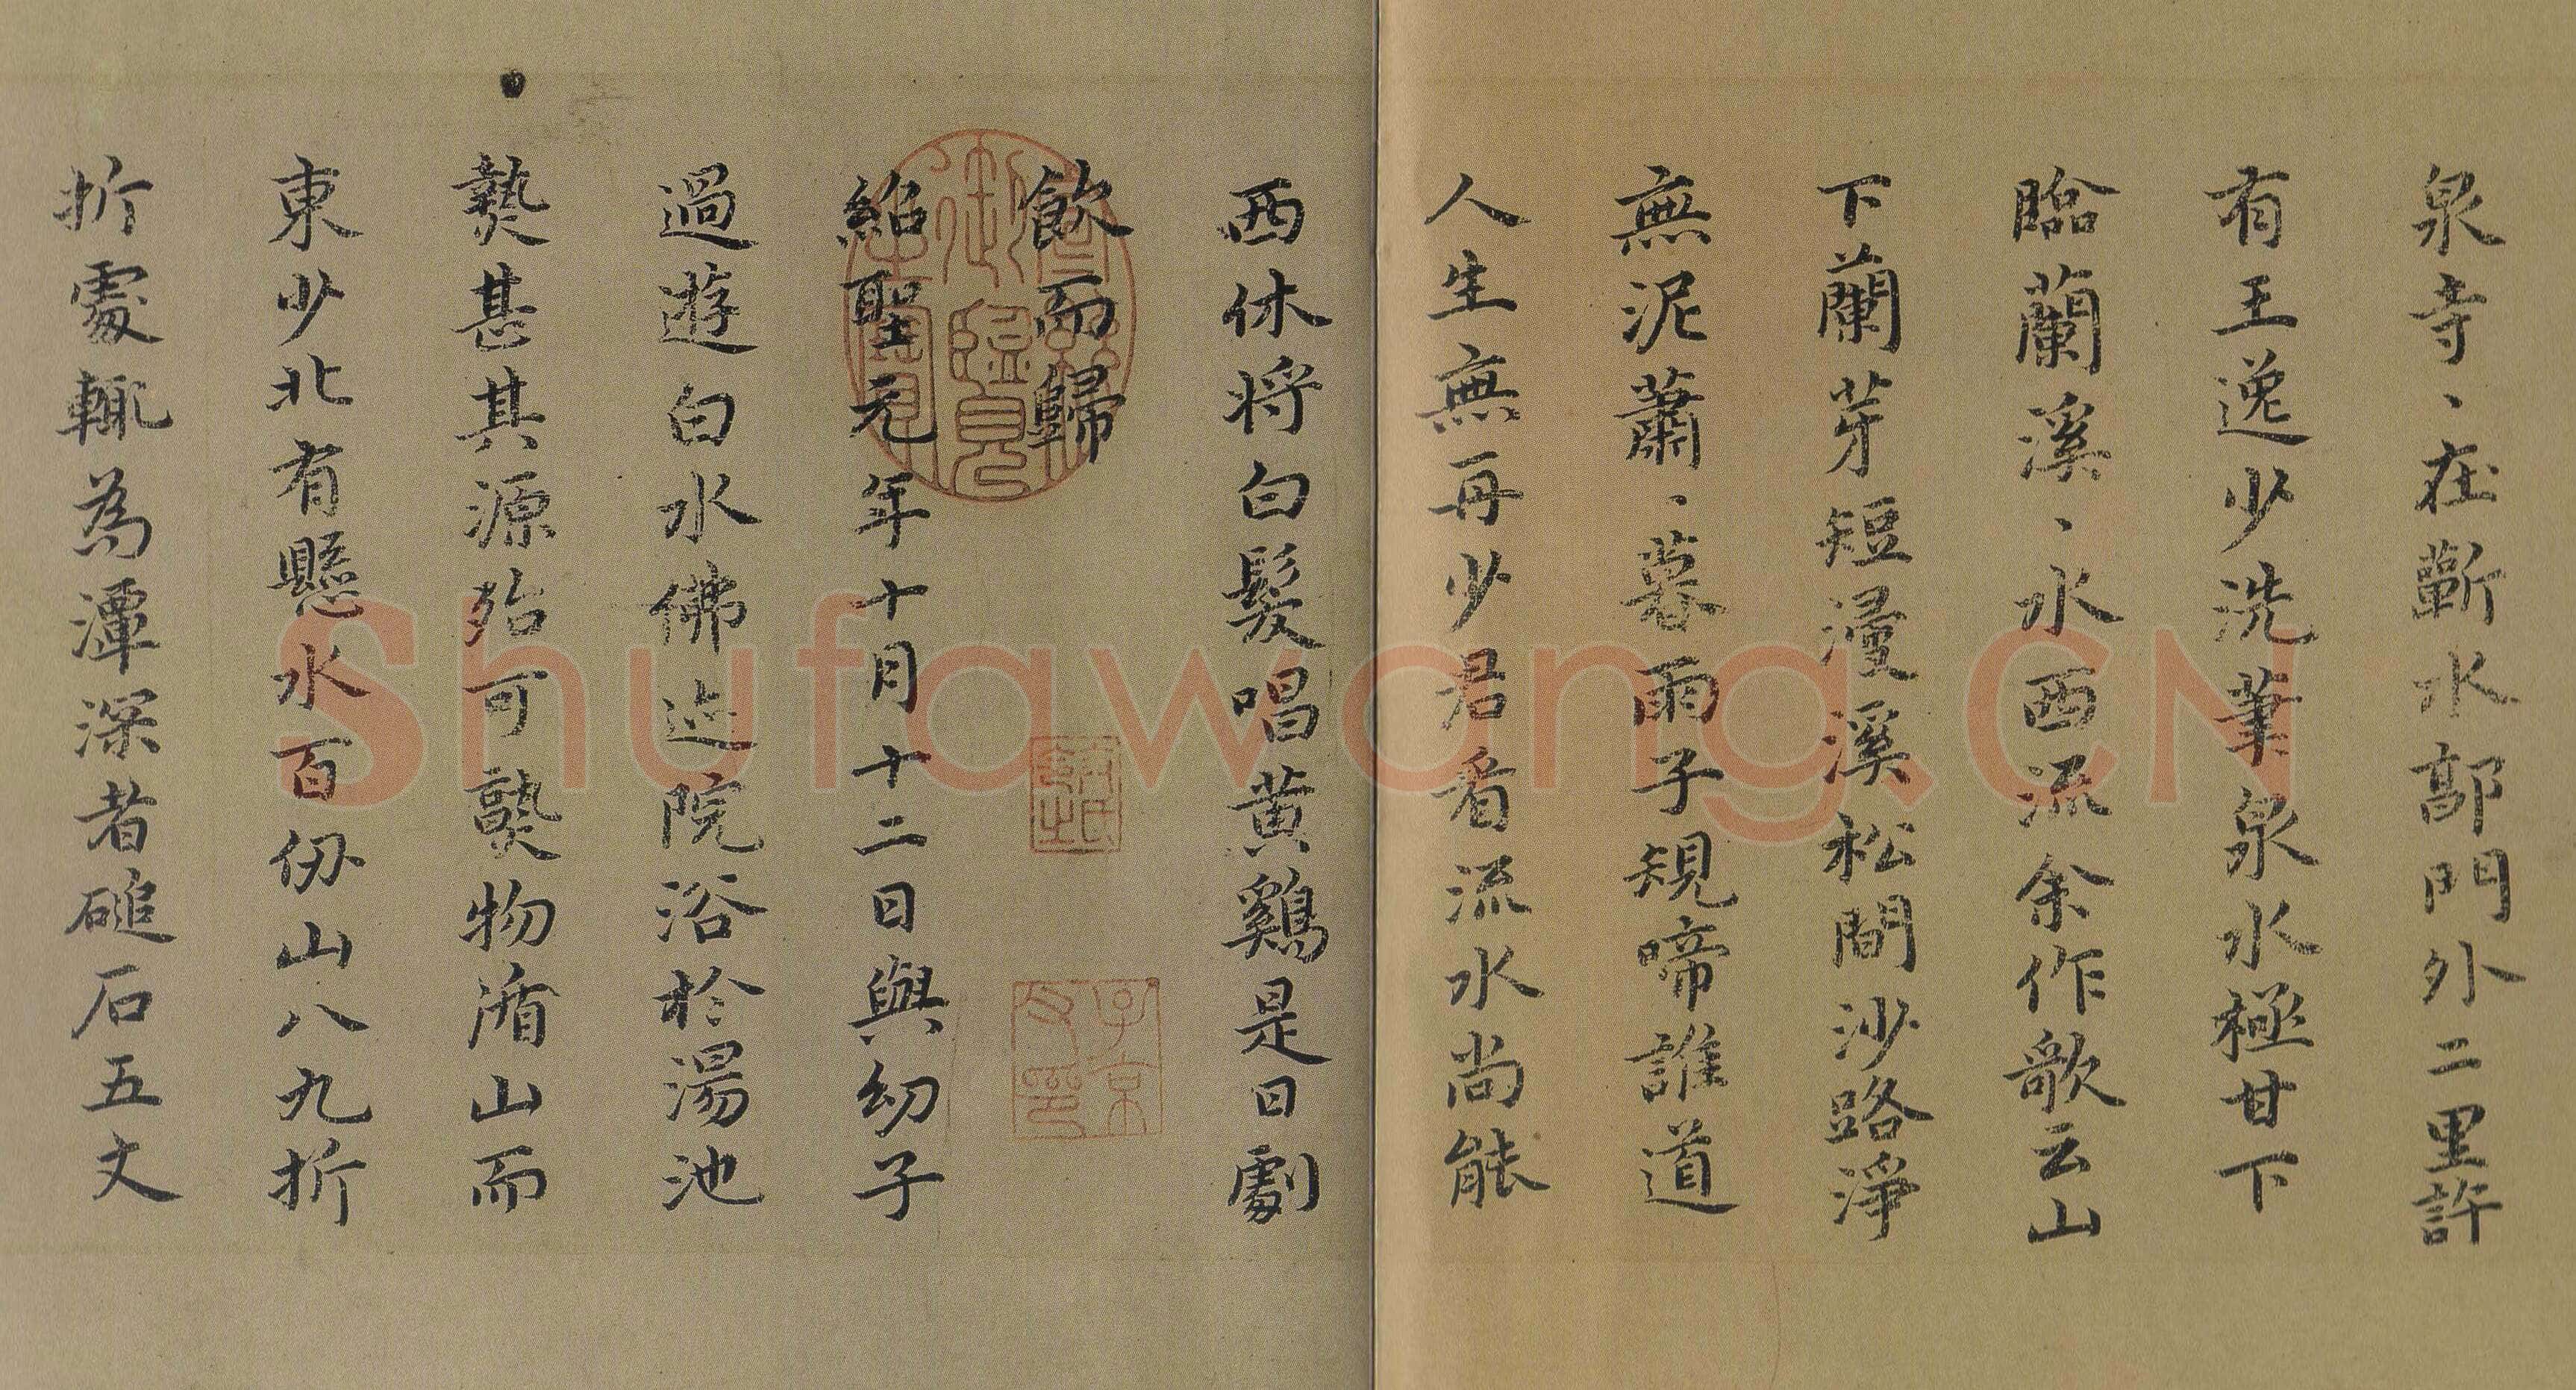 泉寺、在蘄水郭門外二里許
有王逸少洗筆泉水極甘下
臨蘭溪、水西流余作歌云山
下蘭芽短浸溪松間沙路淨
無泥蕭、暮雨子規啼誰道
人生無再少君看流水尚能
西休将白髮唱黄鷄是日劇
飲而歸
紹聖元年十月十二日與幼子
過遊白水佛迹院浴於湯池
熱甚其源殆可熟物循山而
東少北有懸水百仞山八九折
折處輒為潭深者磓石五丈
Shufawang.CN